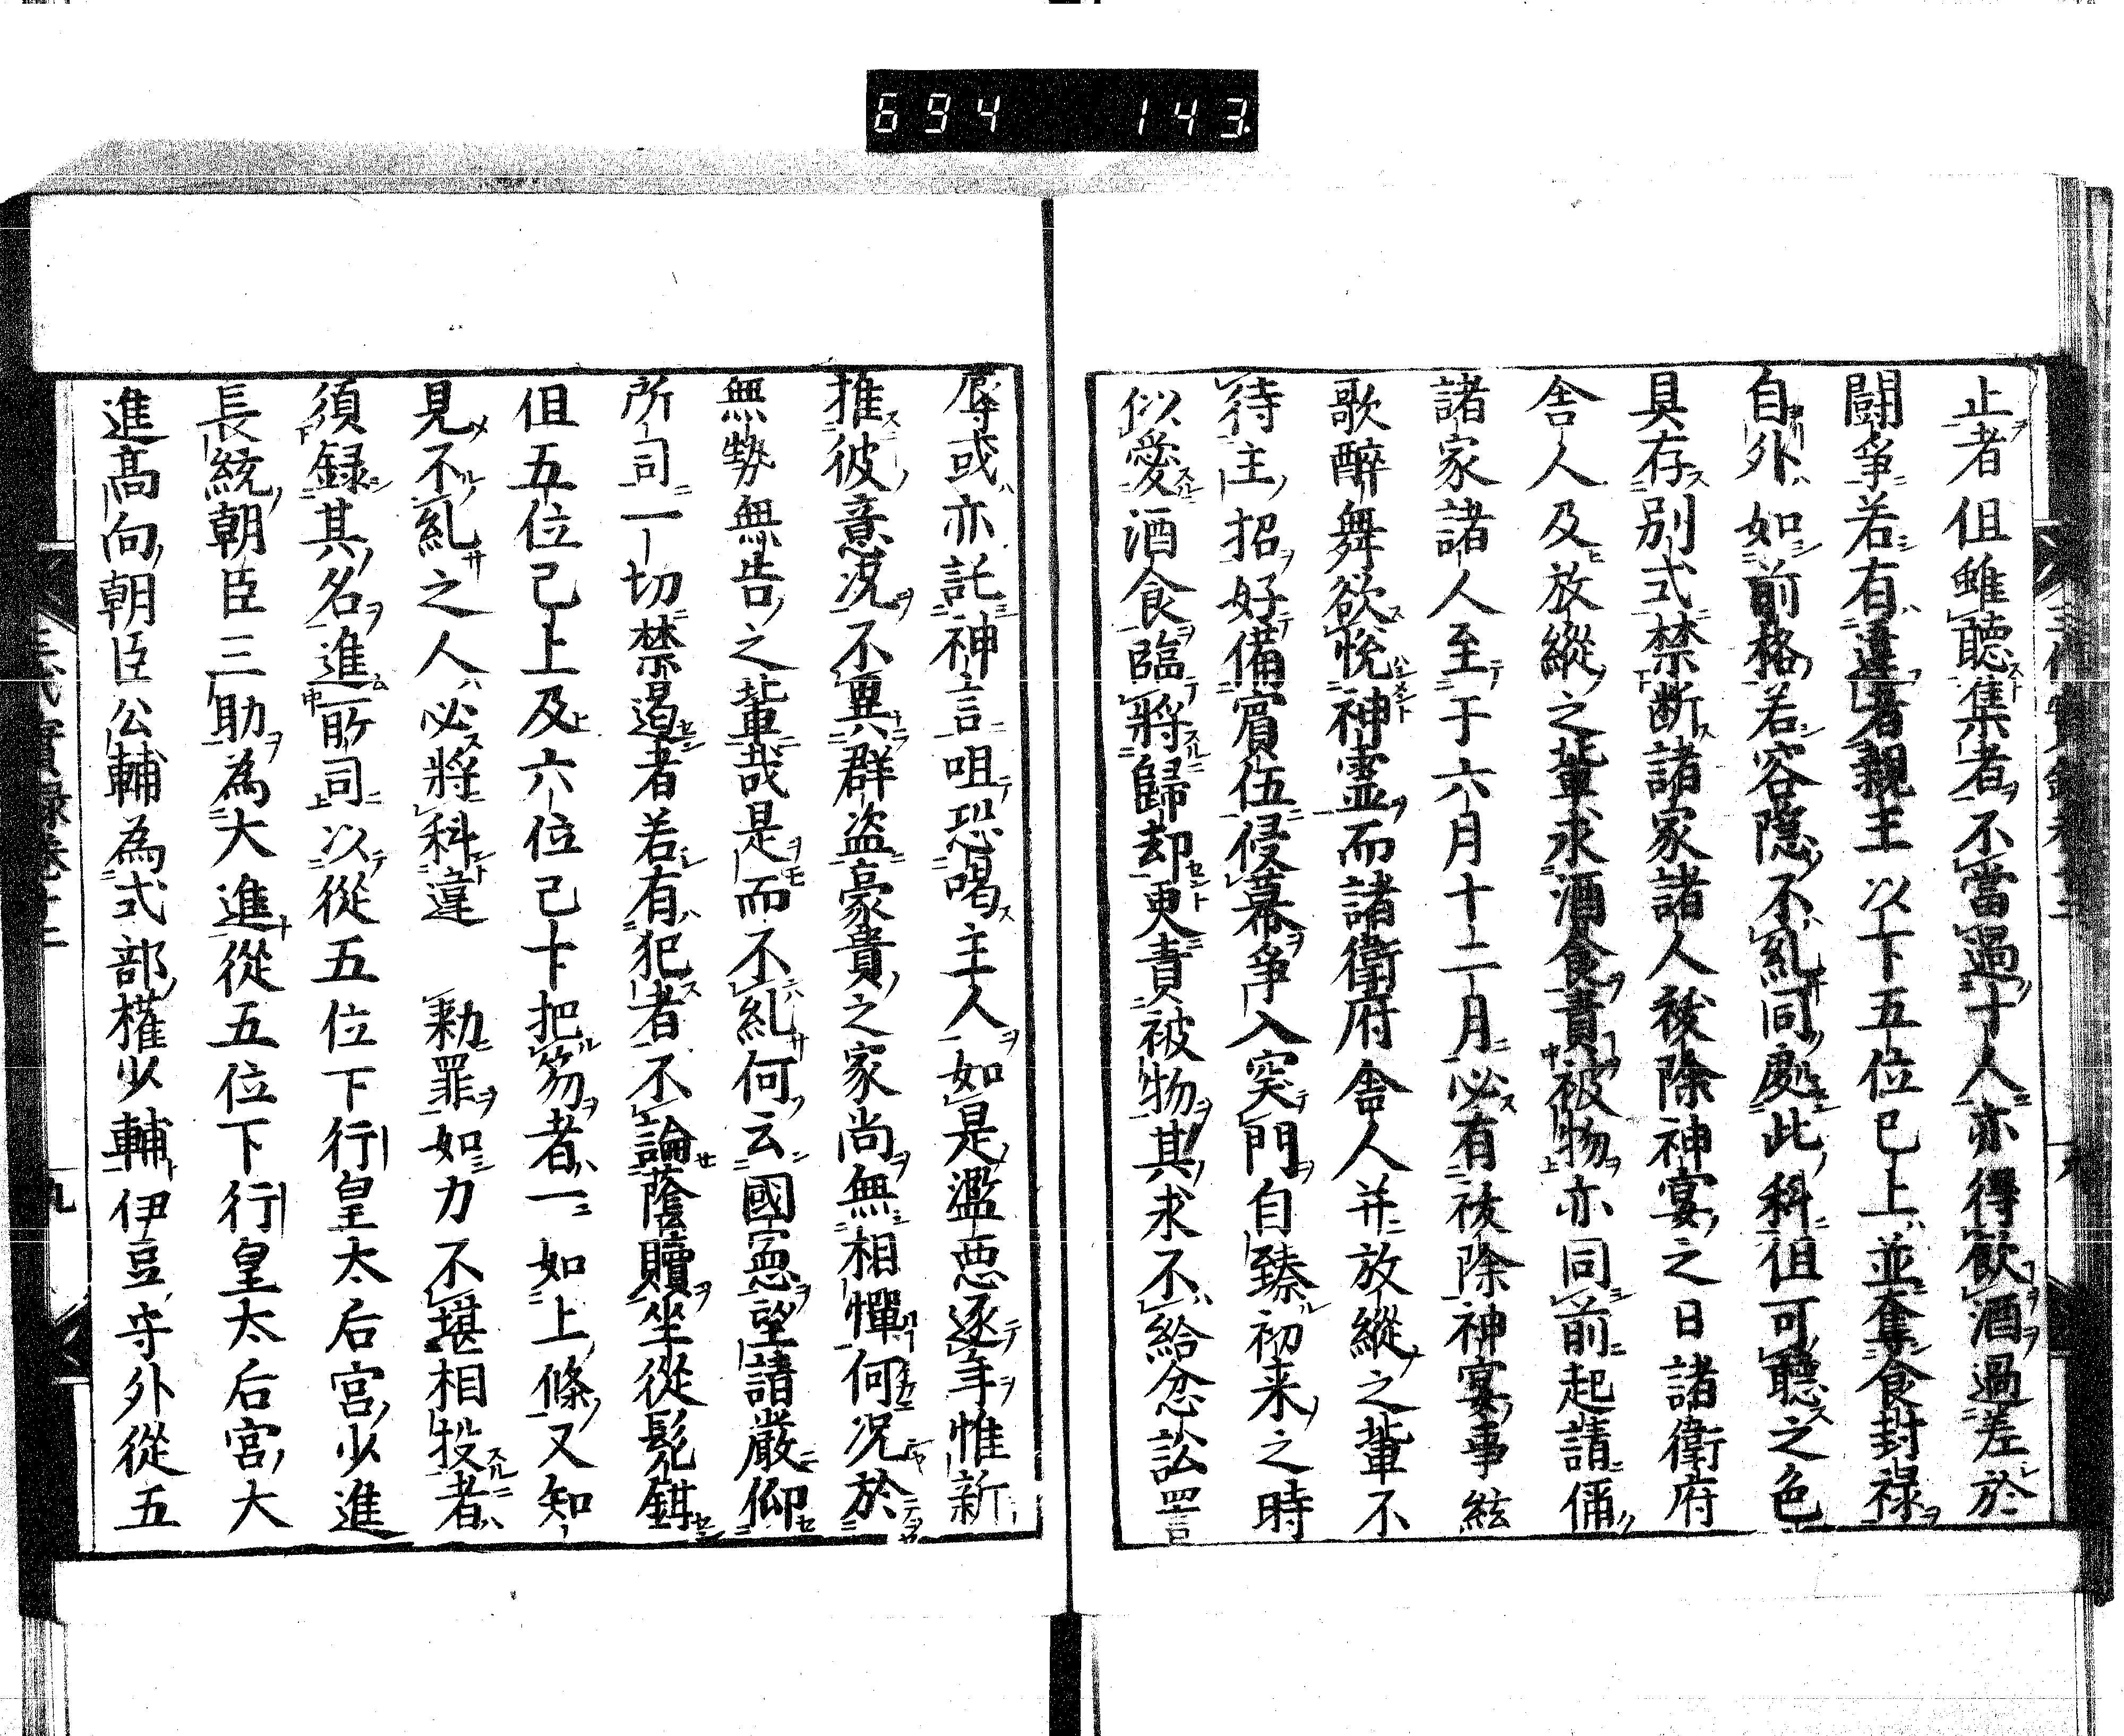 694 143
止者但雖聽集者不當過十人亦得飲酒過差於
闘爭若有違者親王以下五位已上並奪食封祿
自外如前格若容隱不糺同處此科但可聽之色
具存別式禁断諸家諸人祓除神宴之日諸衛府
舎人及放縱之輩求酒食責被物亦同前起請偁
諸家諸人至于六月十二月必有祓除神宴事絃
歌醉舞欲悦神靈而諸衛府舎人并放縱之輩不
待主招好備賓伍侵幕爭入突門自臻初来之時
似愛酒食臨將歸却更責被物其求不給忿訟詈
辱或亦託神言咀恐喝主人如是濫悪逐年惟新
推彼意況不異群盗豪貴之家尚無相憚何況於
無勢無告之輩哉是而不糺何云國憲望請嚴仰
所司一切禁遏者若有犯者不論蔭贖坐從髡鉗
但五位已上及六位已下把笏者一如上條又知
見不糺之人必將科違 勅罪如力不堪相投者
須録其名進所司以從五位下行皇太后宮少進
長統朝臣三助為大進從五位下行皇太后宮大
進高向朝臣公輔為式部權少輔伊豆守外從五
三代實録卷十二
九